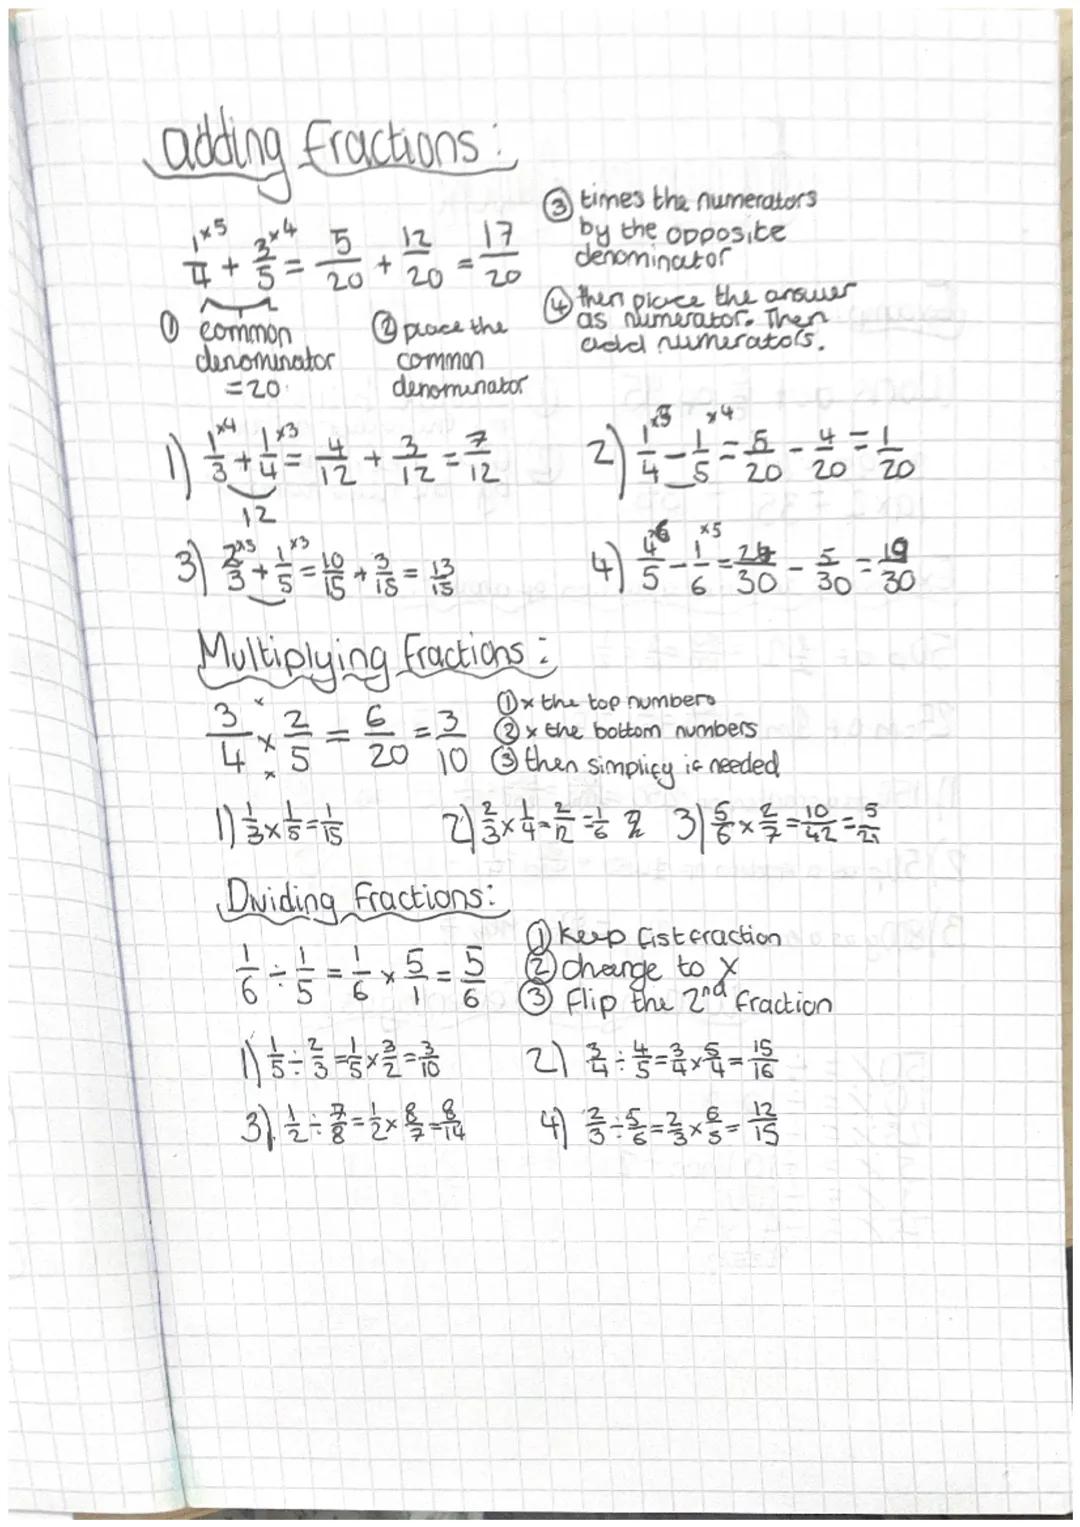 adding fractions:
1/4 ×5 + 3/5 ×4 = 5/20 + 12/20 = 17/20
① common
denominator
=20
② place the
common
denominator
③ times the numerators
by the opposite
denominator
④ then place the answer
as numerator. Then
add numerators.
1) 1/3 ×4 + 1/4 ×3 = 4/12 + 3/12 = 7/12
12
2) 1/4 ×5 - 1/5 ×4 = 5/20 - 4/20 = 1/20
3) 2/3 ×5 + 1/5 ×3 = 10/15 + 3/15 = 13/15
4) 4/5 ×6 - 1/6 ×5 = 24/30 - 5/30 = 19/30
Multiplying fractions:
3/4 × 2/5 = 6/20 = 3/10
① × the top numbers
② × the bottom numbers
③ then simplify if needed
1) 1/3 × 1/5 = 1/15
2) 2/3 × 1/4 = 2/12 = 1/6
3) 5/6 × 2/7 = 10/42 = 5/21
Dividing fractions:
1/6 ÷ 1/5 = 1/6 × 5/1 = 5/6
① Keep fist fraction
② change to X
③ flip the 2nd fraction
1) 1/5 ÷ 2/3 = 1/5 × 3/2 = 3/10
2) 3/4 ÷ 4/5 = 3/4 × 5/4 = 15/16
3) 1/2 ÷ 7/8 = 1/2 × 8/7 = 8/14
4) 2/3 ÷ 5/6 = 2/3 × 6/5 = 12/15